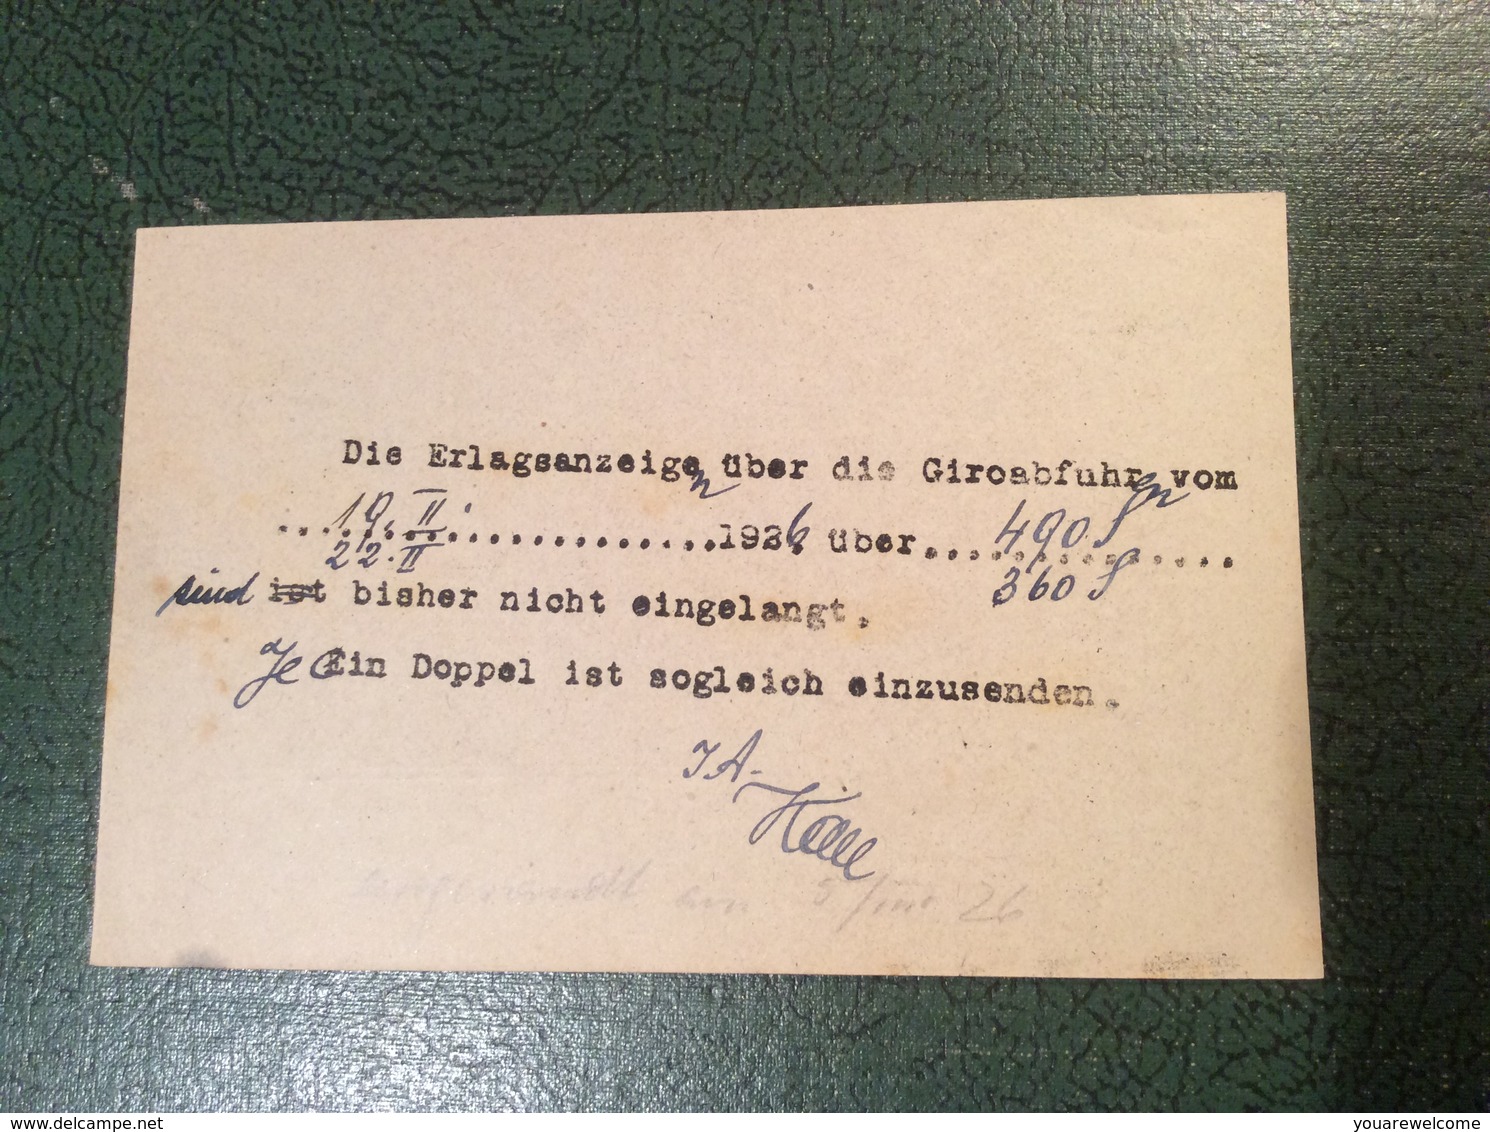 Die Erlagsanzeigen über die Giroabfuhren vom
....19. II.................1926 über....490 S..........
22. II 360 S
sind ist bisher nicht eingelangt.
Je Ein Doppel ist sogleich einzusenden.
IA.
am 5 26
www.delcampe.net
youarewelcome